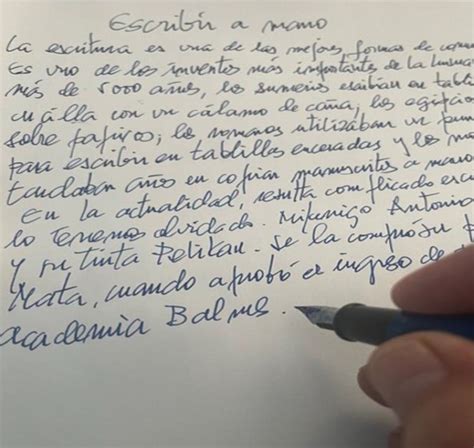 Escribir a mano
La escritura es una de las mejores formas de com
Es uno de los inventos más importantes de la huma
más de 5000 años, los sumerios escribían en tabli
cuilla con un cálamo de caña; los egipcio
sobre papiros; los romanos utilizaban un pun
para escribir en tablillas enceradas y los m
tardaban años en copiar manuscritos a mano
En la actualidad, resulta complicado esc
lo tenemos olvidado. Mi amigo Antonio
y su tinta Pelikan. Se la compró su
Mata, cuando aprobó el ingreso de
academia Balmes.